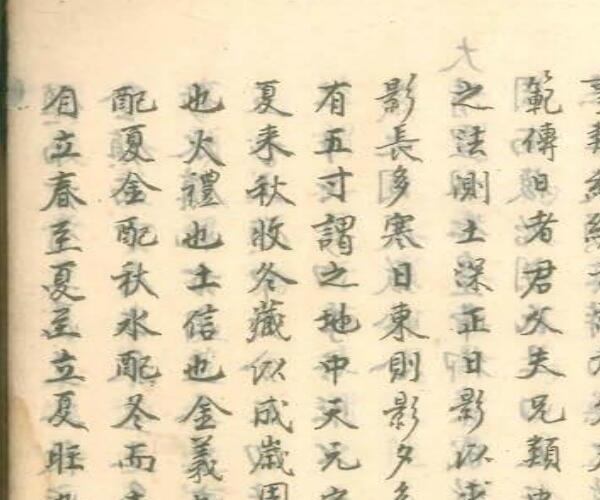 範傳日者君父夫兄類
之法測土深正日影以求
影長多寒日東則影夕多
有五寸謂之地中天元
夏来秋收冬藏以成歲周
也火禮也土信也金義
配夏金配秋水配冬而
自立春至夏至立夏